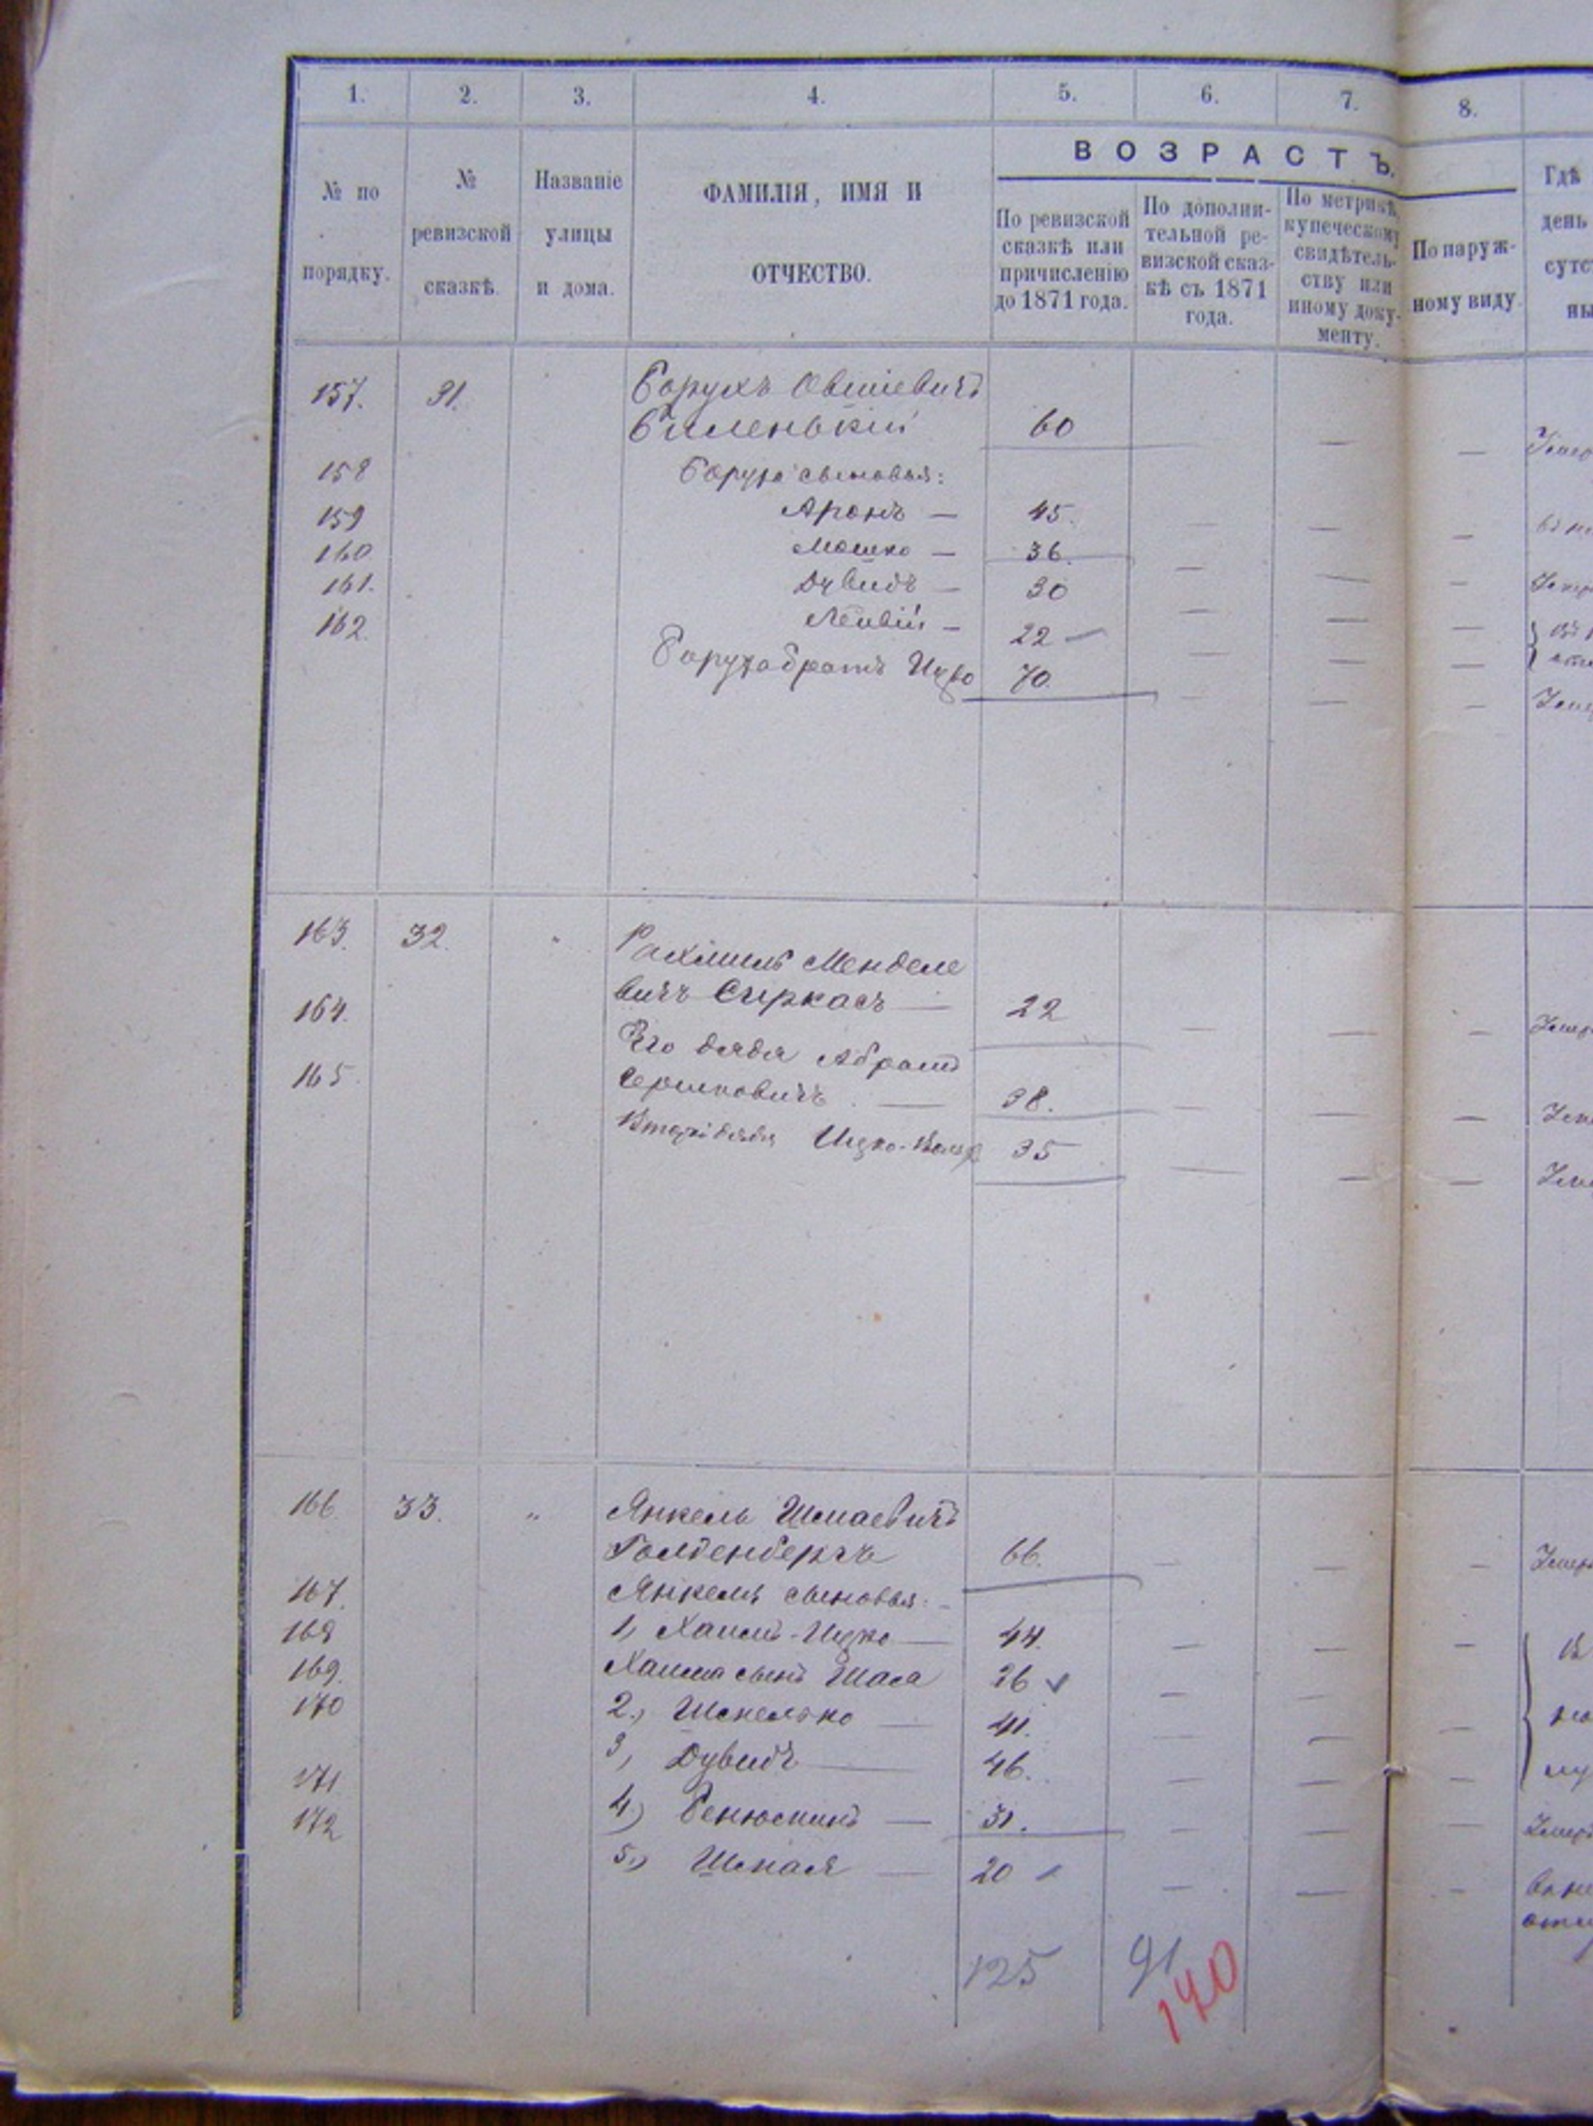 1. 2. 3. 4. 5. 6. 7. 8.
№ по порядку.
№ ревизской сказкѣ.
Названіе улицы и дома.
ФАМИЛІЯ, ИМЯ И ОТЧЕСТВО.
ВОЗРАСТЪ.
По ревизской сказкѣ или причисленію до 1871 года.
По дополнительной ревизской сказкѣ съ 1871 года.
По метрикѣ, купеческому свидѣтельству или иному документу.
По наружному виду.
Гдѣ
день
157. 31. Борухъ Овшіевичъ
Биленькій 60 — —
158 Боруха сыновья:
159 Аронъ — 45. — — —
160 Мошко — 36. — — —
161. Дувидъ — 30 — — —
162. Лейвій — 22 — — —
Боруха братъ Ицко 70. — — —
163. 32. " Рахмиль Менделе
вичъ Сиркасъ — 22 — — —
164. Его дядя Абрамъ
165. Гершковичъ. — 38. — — —
Вторый дядя Ицко-Вольф 35 — — —
166. 33. " Янкель Шмаевичъ
Голденбергъ 66. — — —
167. Янкеля сыновья: -
168 1, Хаимъ-Ицко — 44. — — —
169. Хаима сынъ Шая 26 ✓ — —
170 2., — 41. — — —
3, Дувидъ — 46. — — —
171 4.) Бенюминъ — 31. — — —
172 5.) Шмая — 20 — — —
125 91
140